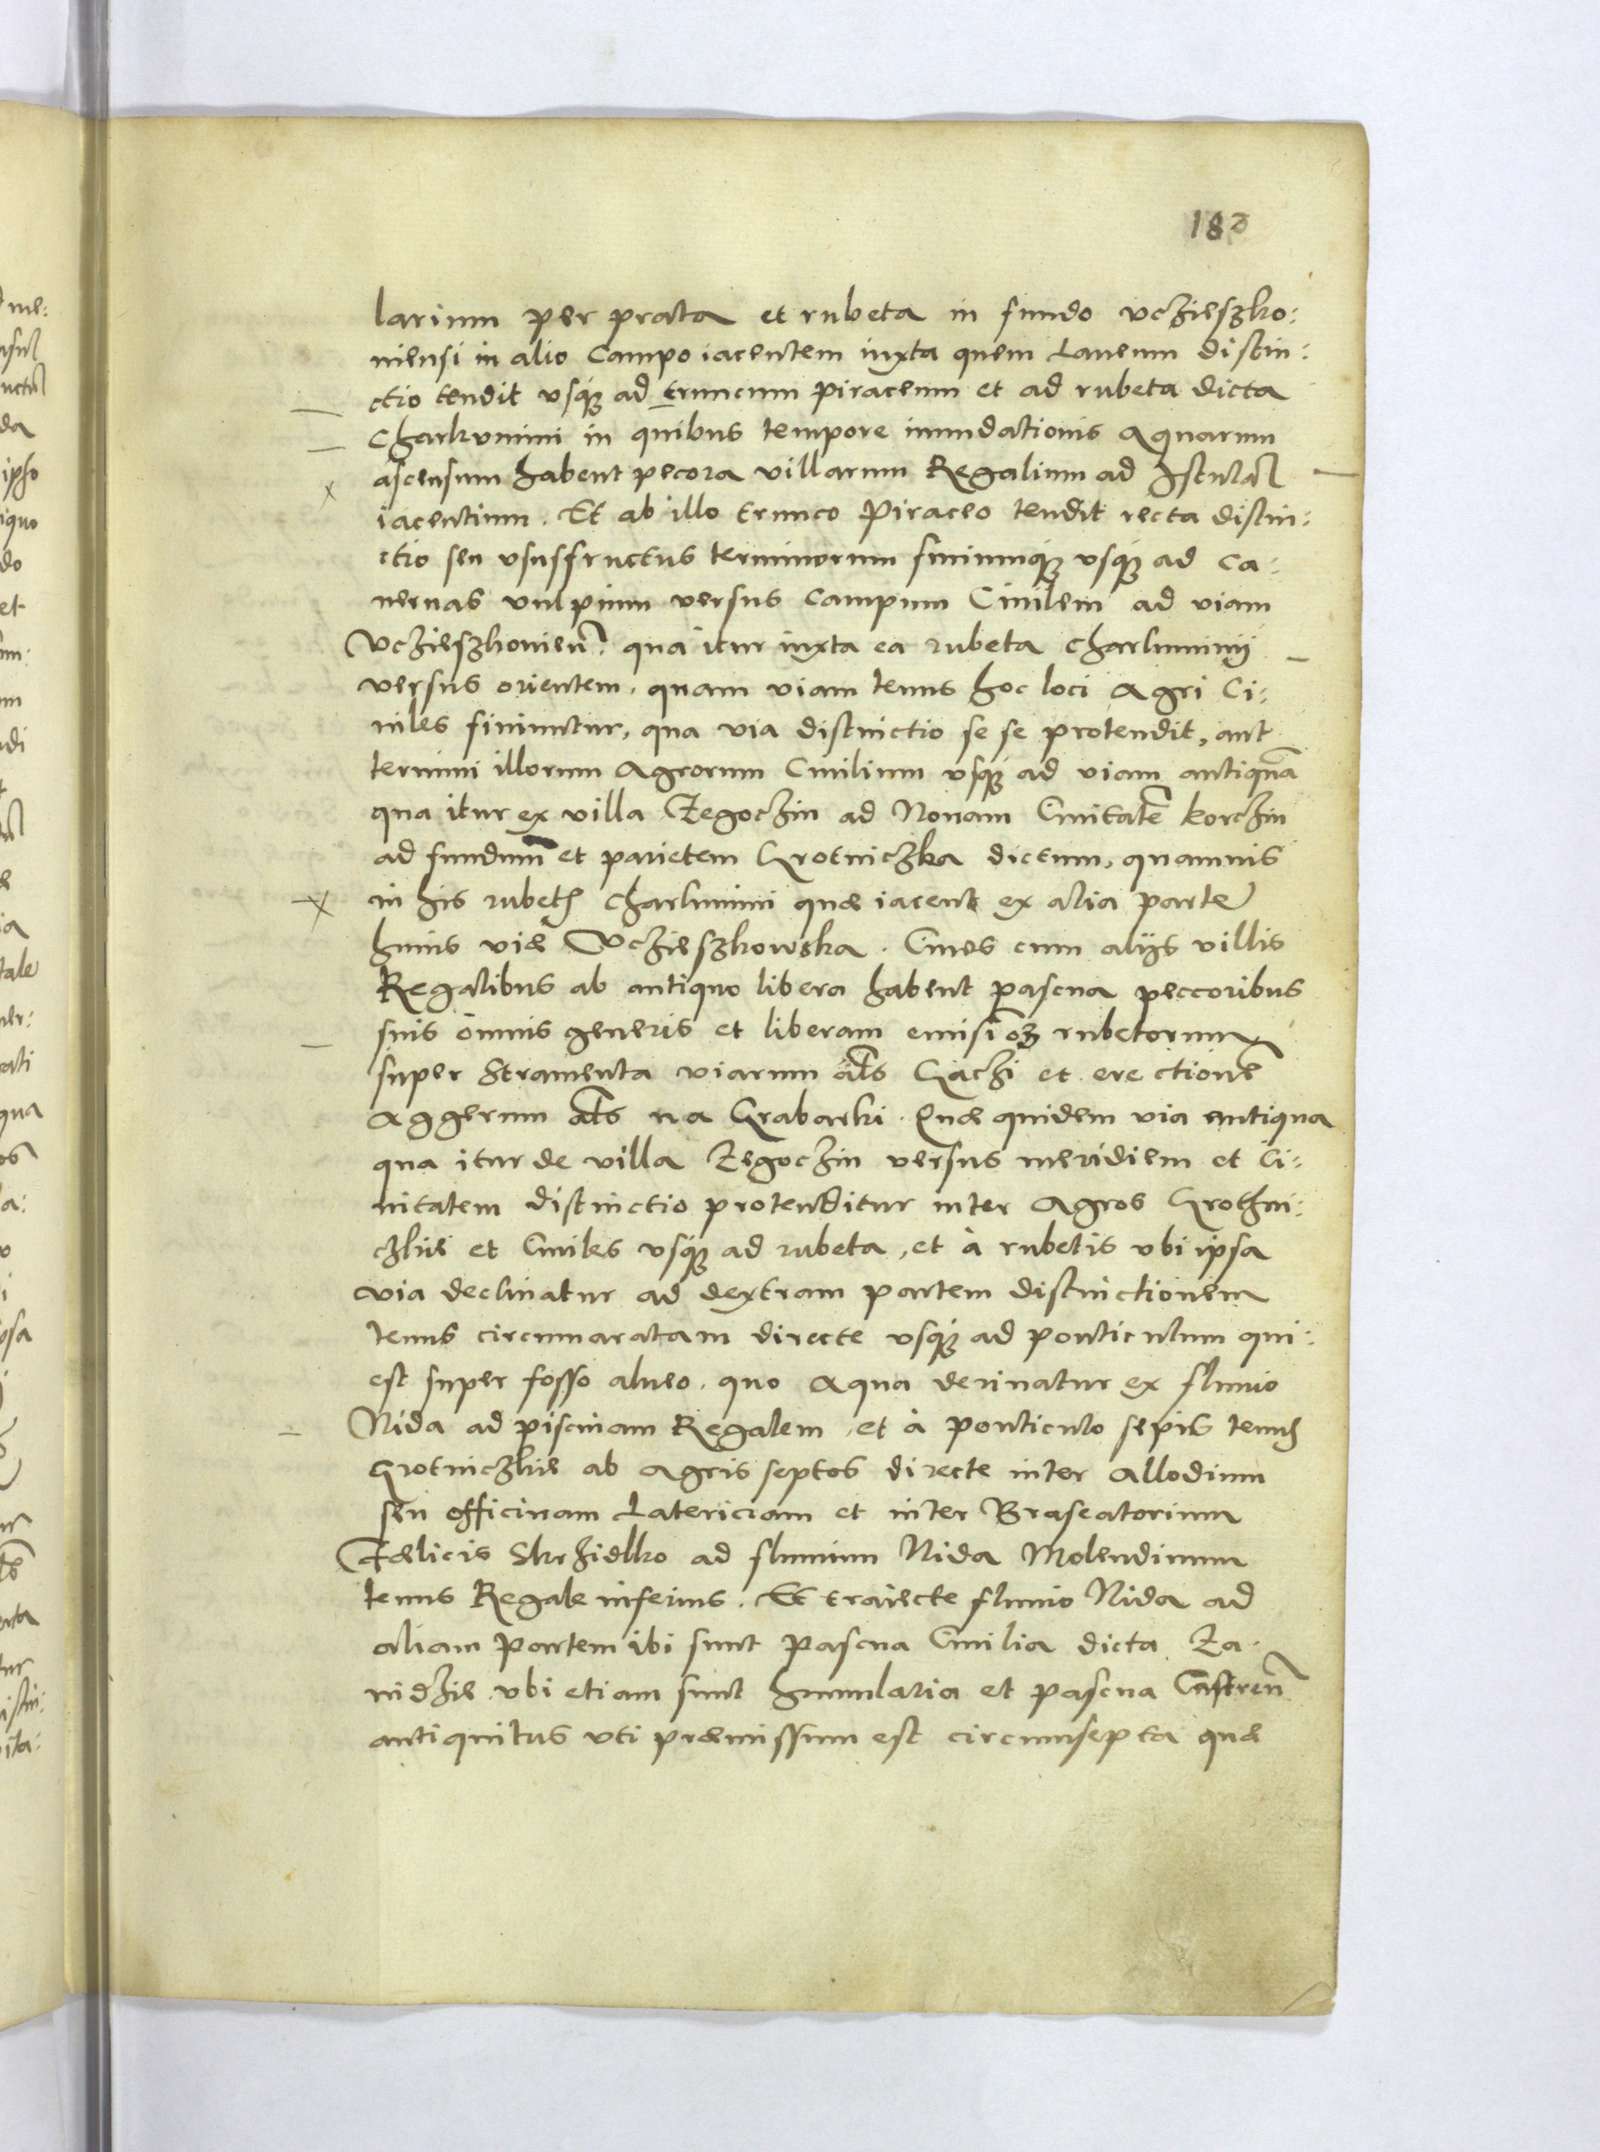 182
larium per prata et rubeta in fundo Vczieszko:
niensi in alio Campo iacentem iuxta quem Laneum distin:
ctio tendit vsq3 ad truncum piraceum et ad rubeta dicta
Charkumini in quibus tempore inundationis Aquarum
ascensum habent pecora villarum Regalium ad Istulā
iacentium. Et ab illo trunco Piraceo tendit recta distin:
ctio seu vsusfructus terminorum finiumq3 vsq3 ad Ca:
uernas vulpium versus Campum Ciuilem ad viam
Vczieszkonien. qua itur iuxta ea rubeta Charkuminij
versus orientem. quam viam tenus hoc loci Agri Ci:
uiles finiuntur, qua via distinctio se se protendit, aut
termini illorum Agrorum Ciuilium vsq3 ad viam antiquā
qua itur ex villa Zegoczin ad Nouam Ciuitatē Korczin
ad fundum et parietem Grotniczka dictum, quamuis
in his rubetis Charkumini quæ iacent ex alia parte
huius viæ Vczieszkowska. Ciues cum alijs villis
Regalibus ab antiquo libera habent pascua peccoribus
suis omnis generis et liberam emisionem rubetorum
super Stramenta viarum als Gaczi et erectionē
Aggerum als na Grabarki. Quæ quidem via antiqua
qua itur de villa Zegoczin versus meridiem et Ci:
uitatem distinctio protenditur inter Agros Grothni:
czkie et Ciuiles vsq3 ad rubeta, et à rubetis vbi ipsa
via declinatur ad dextram partem distinctionem
tenus circumaratam directe vsq3 ad ponticulum qui:
est super fosso alueo. quo Aqua deriuatur ex fluuio
Nida ad piscinam Regalem, et à ponticulo sepis tenus
Grotniczkie ab Agris septos directe inter Allodium
seu officinam Latericiam et inter Braseatorium
Fælicis Skrzidlko ad fluuium Nida Molendinum
tenus Regale inferius. Et traiecte fluuio Nida ad
aliam partem ibi sunt pascua Ciuilia dicta Za:
nidzie. vbi etiam sunt humularia et pascua Castren
antiquitus vti præmissum est circumsepta quæ